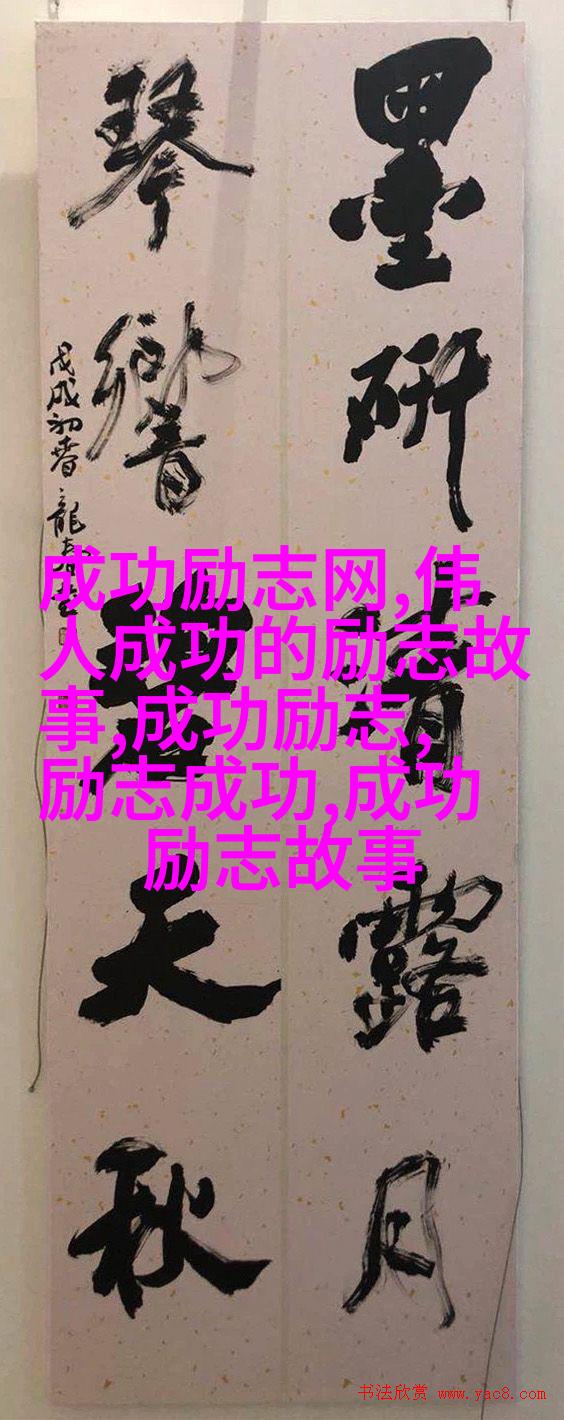 墨研清露月
琴響碧天秋
戊戌初春 龍
成功励志网,伟
人成功的励志故
事,成功励志,
励志成功,成功
励志故事
书法欣赏 www.yac8.com